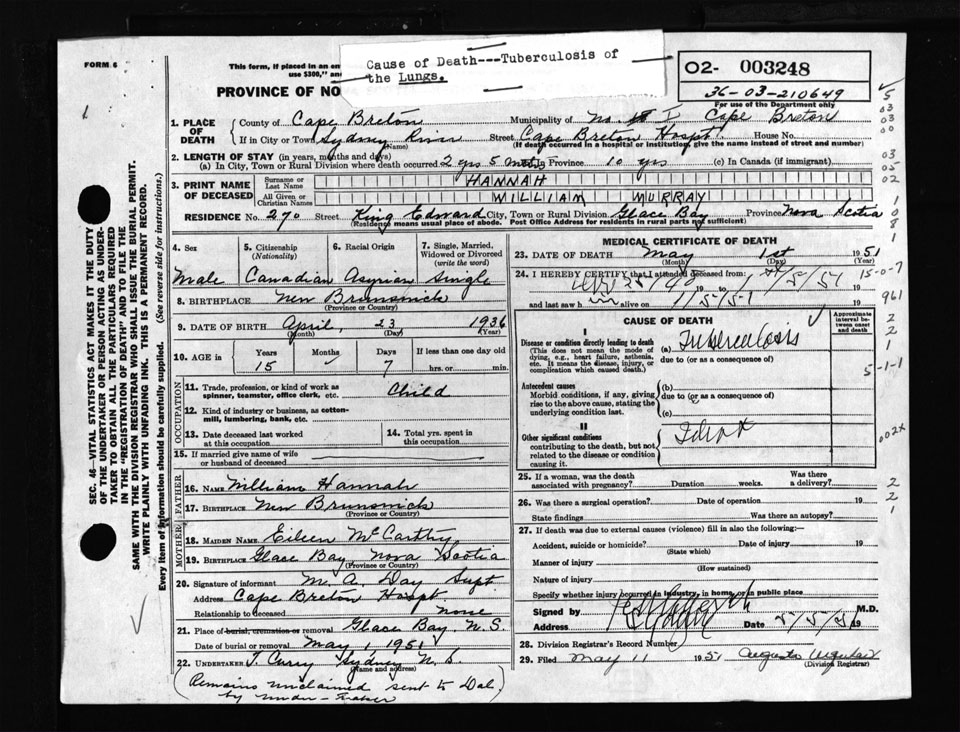 FORM 6
This form, if placed in an en
use $300," an
PROVINCE OF NO
Cause of Death---Tuberculosis of
the Lungs.
O2- 003248
36-03-210649
For use of the Department only
1. PLACE OF DEATH
County of Cape Breton Municipality of No. I Cape Breton
If in City or Town Sydney River Street Cape Breton Hospt. House No.
(Name) (If death occurred in a hospital or institution, give the name instead of street and number)
2. LENGTH OF STAY (in years, months and days)
(a) In City, Town or Rural Division where death occurred 2 yrs 5 mths Province 10 yrs (c) In Canada (if immigrant)
3. PRINT NAME OF DECEASED
Surname or Last Name HANNAH
All Given or Christian Names WILLIAM MURRAY
RESIDENCE No. 270 Street King Edward City, Town or Rural Division Glace Bay Province Nova Scotia
(Residence means usual place of abode. Post Office Address for residents in rural parts not sufficient)
4. Sex 5. Citizenship (Nationality) 6. Racial Origin 7. Single, Married, Widowed or Divorced (write the word)
Male Canadian Single
8. BIRTHPLACE New Brunswick
(Province or Country)
9. DATE OF BIRTH April, 23 1936
(Month) (Day) (Year)
10. AGE in Years Months Days If less than one day old
15 7 hrs. or min.
OCCUPATION
11. Trade, profession, or kind of work as spinner, teamster, office clerk, etc. Child
12. Kind of industry or business, as cotton-mill, lumbering, bank, etc.
13. Date deceased last worked at this occupation
14. Total yrs. spent in this occupation
15. If married give name of wife or husband of deceased
FATHER
16. NAME William Hannah
17. BIRTHPLACE New Brunswick
(Province or Country)
MOTHER
18. MAIDEN NAME Eileen McCarthy
19. BIRTHPLACE Glace Bay Nova Scotia
(Province or Country)
20. Signature of informant M. A. Day Supt
Address Cape Breton Hospt.
Relationship to deceased none
21. Place of burial, cremation or removal Glace Bay, N.S.
Date of burial or removal May 1, 1951
22. UNDERTAKER T. Curry Sydney N.S.
(Name and address)
(Remains unclaimed sent to Dal
by under-taker
MEDICAL CERTIFICATE OF DEATH
23. DATE OF DEATH May 1st 1951
(Month) (Day) (Year)
24. I HEREBY CERTIFY that I attended deceased from
19 to 1/5/51 19
and last saw h alive on 1/5/51 19
CAUSE OF DEATH
Approximate interval between onset and death
I
Disease or condition directly leading to death
(This does not mean the mode of dying, e.g., heart failure, asthenia, etc. It means the disease, injury, or complication which caused death.)
(a) Tuberculosis
due to (or as a consequence of)
Antecedent causes
Morbid conditions, if any, giving rise to the above cause, stating the underlying condition last.
(b)
due to (or as a consequence of)
(c)
II
Other significant conditions
contributing to the death, but not related to the disease or condition causing it.
25. If a woman, was the death associated with pregnancy? Duration weeks. Was there a delivery?
26. Was there a surgical operation? Date of operation 19
State findings Was there an autopsy?
27. If death was due to external causes (violence) fill in also the following:—
Accident, suicide or homicide? Date of injury 19
(State which)
Manner of injury
(How sustained)
Nature of injury
Specify whether injury occurred in industry, in home, or in public place
Signed by M.D.
Address Date 19
28. Division Registrar's Record Number
29. Filed May 11 1951
(Division Registrar)
5
03
03
00
03
05
02
1
0
8
1
15-0-7
961
2
2
1
5-1-1
002X
2
2
1
SEC. 46—VITAL STATISTICS ACT MAKES IT THE DUTY
OF THE UNDERTAKER OR PERSON ACTING AS UNDER-
TAKER TO OBTAIN ALL THE PARTICULARS REQUIRED
IN THE "REGISTRATION OF DEATH" AND TO FILE THE
SAME WITH THE DIVISION REGISTRAR WHO SHALL ISSUE THE BURIAL PERMIT.
WRITE PLAINLY WITH UNFADING INK. THIS IS A PERMANENT RECORD.
Every item of information should be carefully supplied. (See reverse side for instructions.)